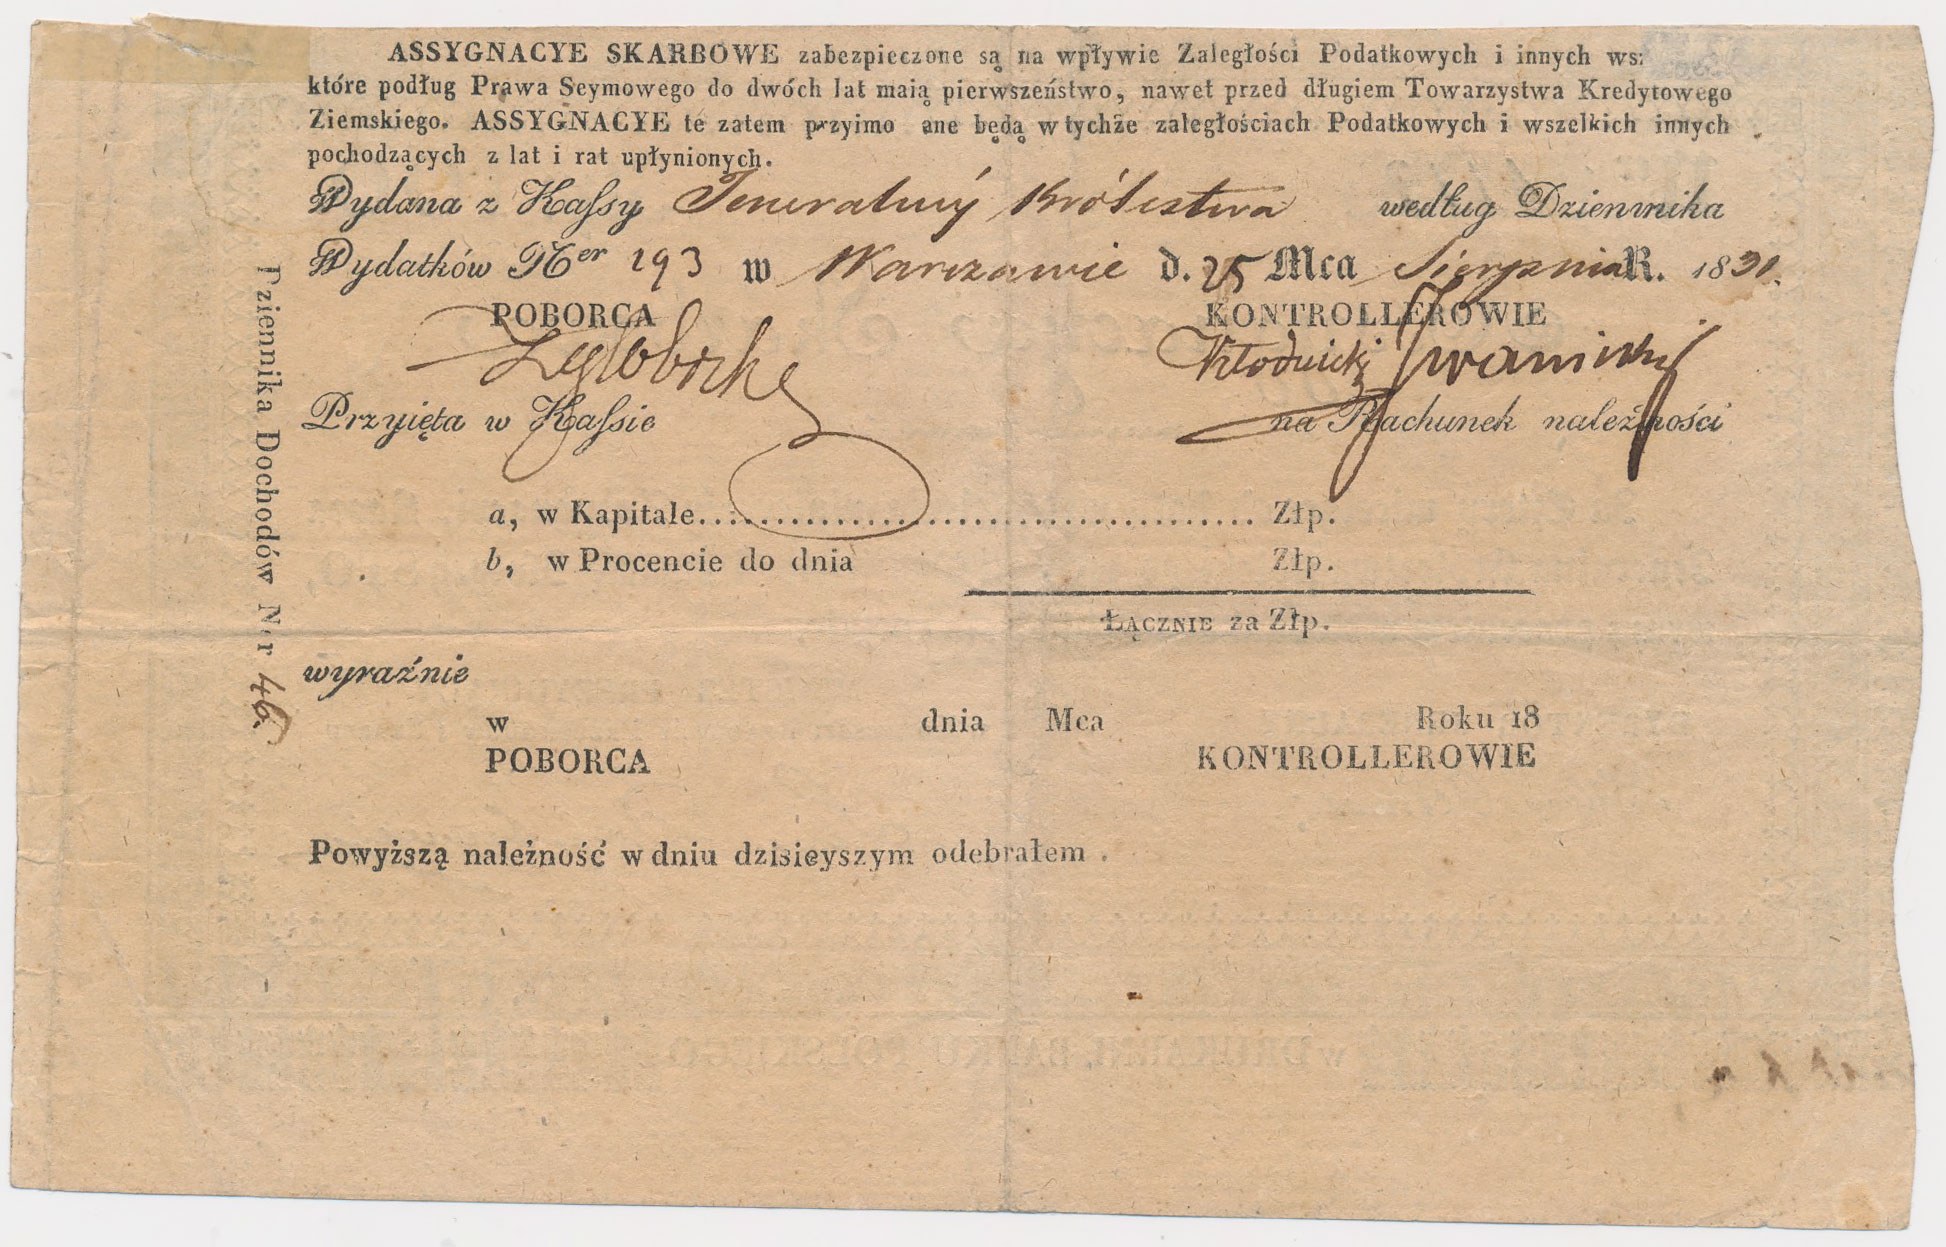 ASSYGNACYE SKARBOWE zabezpieczone są na wpływie Zaległości Podatkowych i innych ws:
które podług Prawa Seymowego do dwóch lat maią pierwszeństwo, nawet przed długiem Towarzystwa Kredytowego
Ziemskiego. ASSYGNACYE te zatem przyimo ane będą w tychże zaległościach Podatkowych i wszelkich innych
pochodzących z lat i rat upłynionych.
Wydana z Kassy Jeneralnéy Królestwa według Dziennika
Wydatków Ner 293 w Warszawie d. 25 Mca Sierpnia R. 1831.
POBORCA KONTROLLEROWIE
Kłodnicki Iwanicki
Przyięta w Kassie na Rachunek należności
a, w Kapitale........................................ Złp.
b, w Procencie do dnia Złp.
ŁĄCZNIE za Złp.
wyraźnie
w dnia Mca Roku 18
POBORCA KONTROLLEROWIE
Powyższą należność w dniu dzisieyszym odebrałem .
Dziennika Dochodów Ner 46.
w DRUKARNI BANKU POLSKIEGO